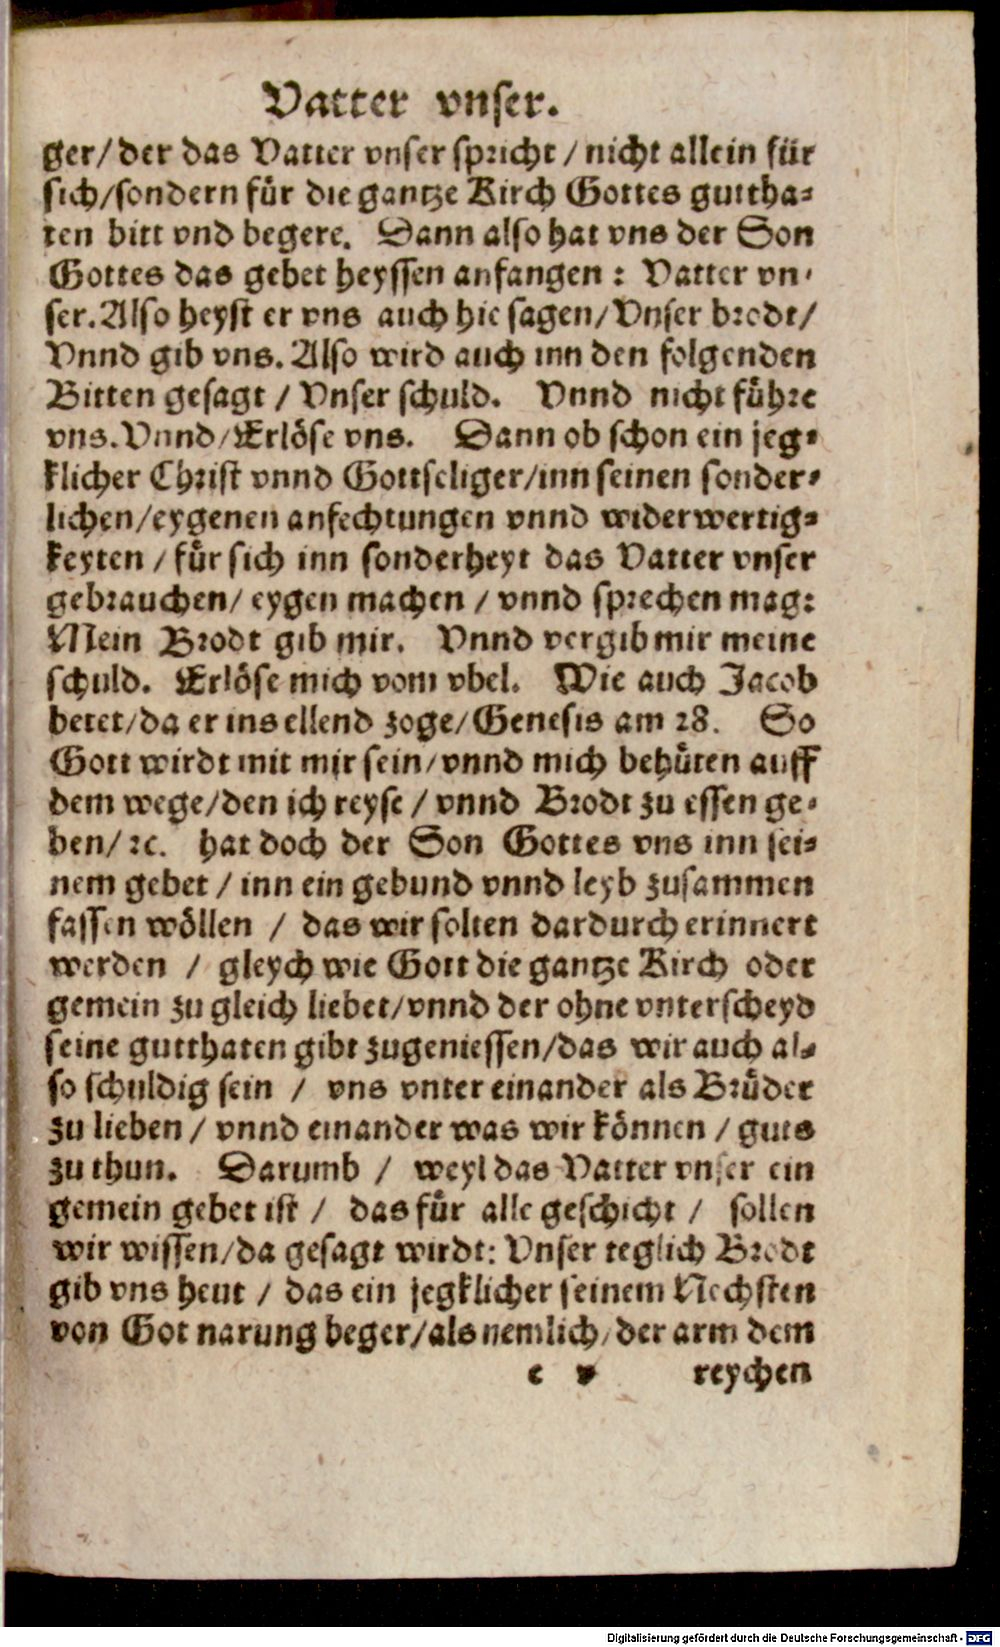 Vatter vnser.
ger/der das Vatter vnser spricht/nicht allein für
sich/sondern für die gantze Kirch Gottes guttha-
ten bitt vnd begere. Dann also hat vns der Son
Gottes das gebet heyssen anfangen: Vatter vn-
ser. Also heyst er vns auch hie sagen/Vnser brodt/
Vnnd gib vns. Also wird auch inn den folgenden
Bitten gesagt/Vnser schuld. Vnnd nicht führe
vns. Vnnd/Erlöse vns. Dann ob schon ein jeg-
klicher Christ vnnd Gottseliger/inn seinen sonder-
lichen/eygenen anfechtungen vnnd widerwertig-
keyten/für sich inn sonderheyt das Vatter vnser
gebrauchen/eygen machen/vnnd sprechen mag:
Mein Brodt gib mir. Vnnd vergib mir meine
schuld. Erlöse mich vom vbel. Wie auch Jacob
betet/da er ins ellend zoge/Genesis am 28. So
Gott wirdt mit mir sein/vnnd mich behüten auff
dem wege/den ich reyse/vnnd Brodt zu essen ge-
ben/ꝛc. hat doch der Son Gottes vns inn sei-
nem gebet/inn ein gebund vnnd leyb zusammen
fassen wöllen/das wir solten dardurch erinnert
werden/gleych wie Gott die gantze Kirch oder
gemein zu gleich liebet/vnnd der ohne vnterscheyd
seine gutthaten gibt zugeniessen/das wir auch al-
so schuldig sein/vns vnter einander als Brüder
zu lieben/vnnd einander was wir können/guts
zu thun. Darumb/weyl das Vatter vnser ein
gemein gebet ist/das für alle geschicht/sollen
wir wissen/da gesagt wirdt: Vnser teglich Brodt
gib vns heut/das ein jegklicher seinem Nechsten
von Got narung beger/als nemlich/der arm dem
e v reychen
Digitalisierung gefördert durch die Deutsche Forschungsgemeinschaft - DFG